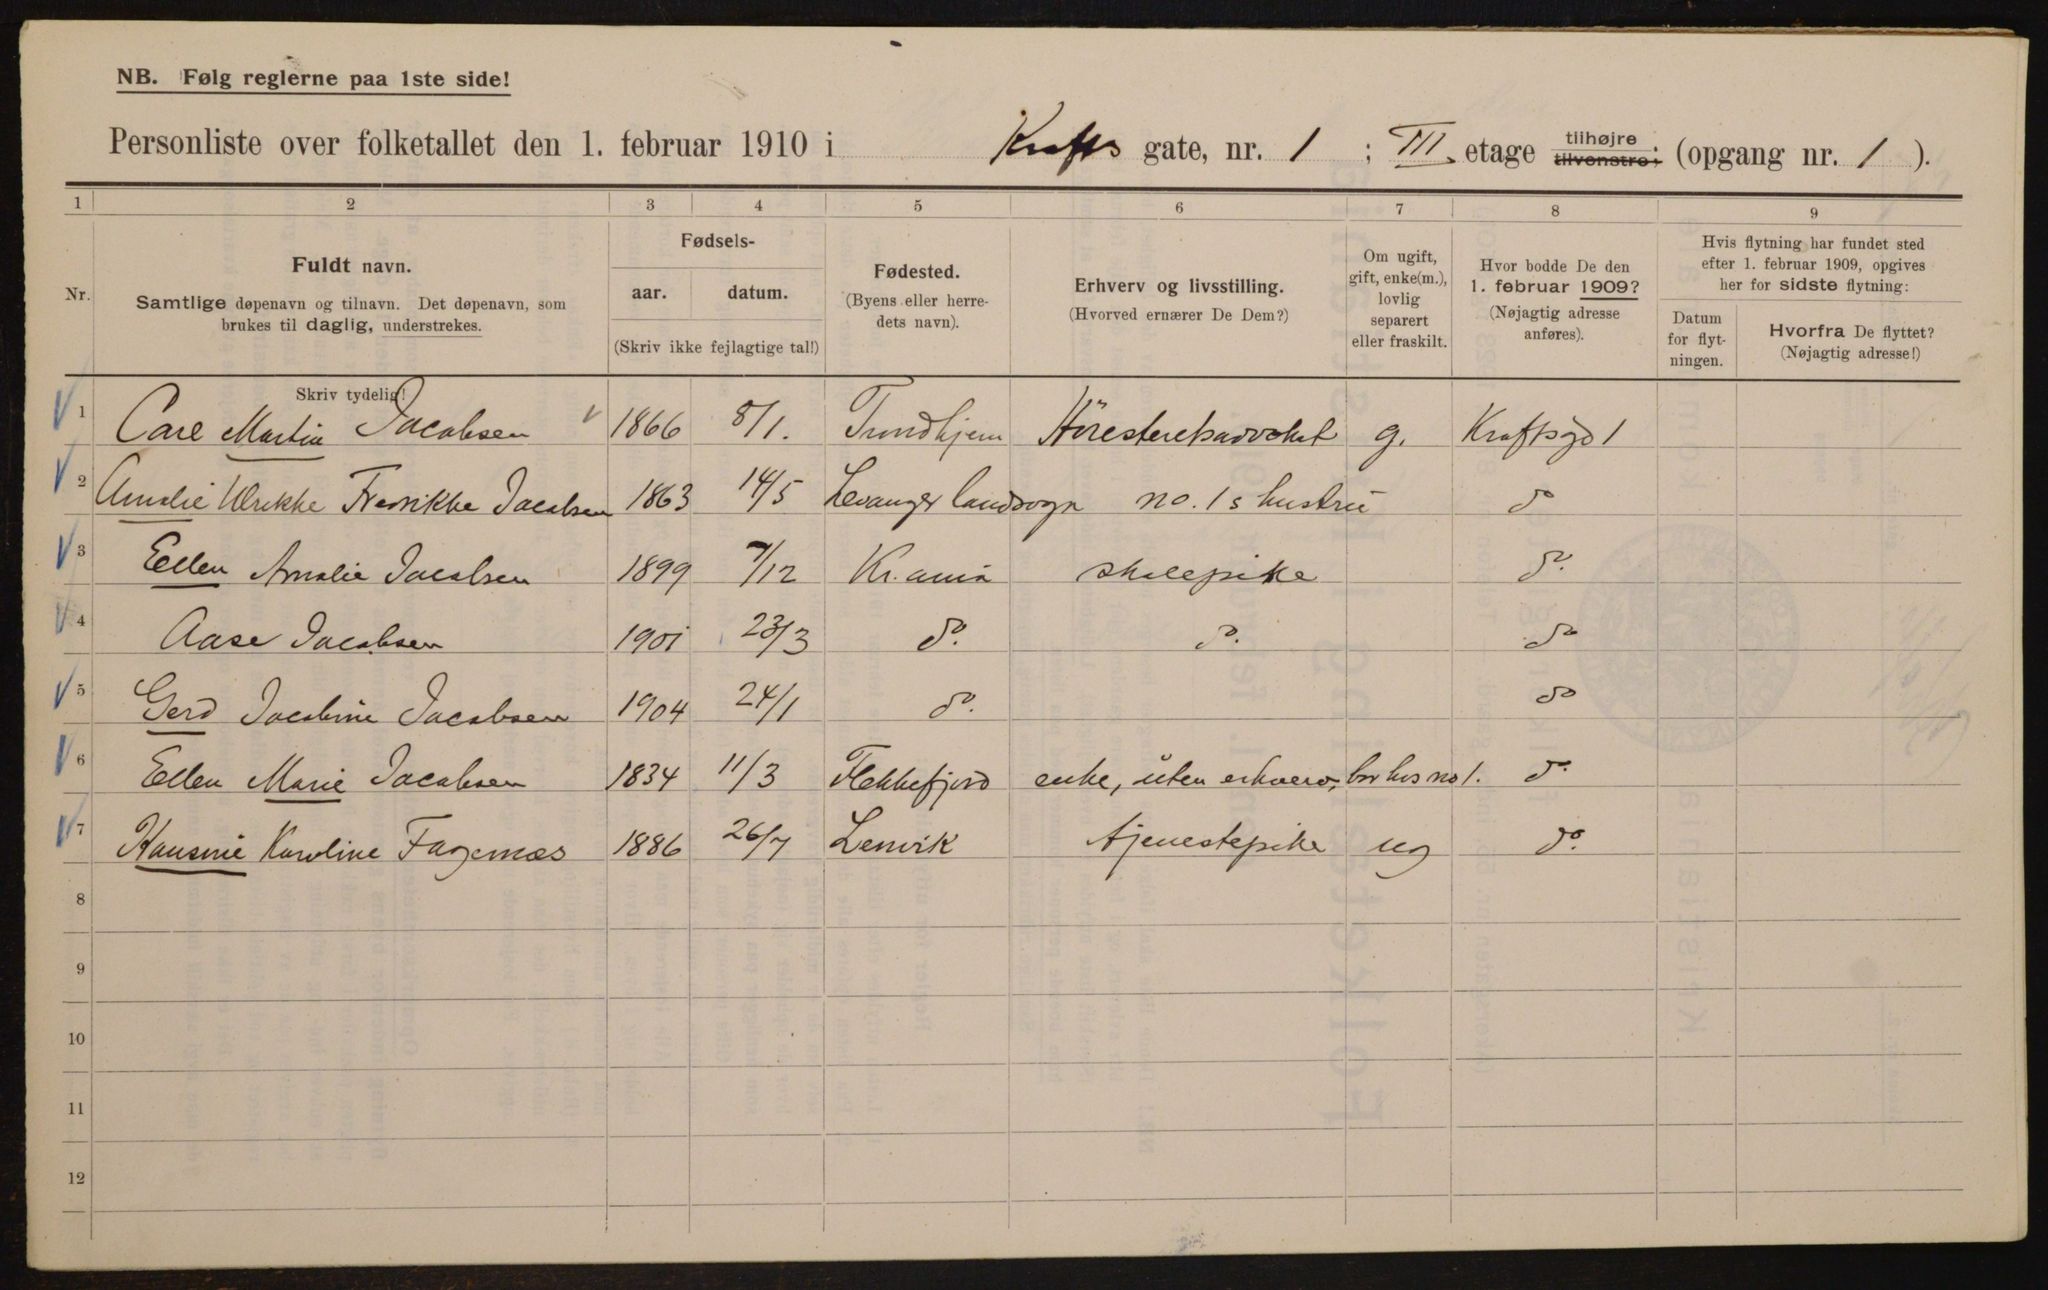 NB. Følg reglerne paa 1ste side!
Personliste over folketallet den 1. februar 1910 i Krafts gate, nr. 1 ; III etage tilhøjre tilvenstre; (opgang nr. 1 ).
1 2 3 4 5 6 7 8 9
Nr.
Fuldt navn.
Samtlige døpenavn og tilnavn. Det døpenavn, som
brukes til daglig, understrekes.
Fødsels-
aar. datum.
(Skriv ikke fejlagtige tal!)
Fødested.
(Byens eller herre-
dets navn).
Erhverv og livsstilling.
(Hvorved ernærer De Dem?)
Om ugift,
gift, enke(m.),
lovlig
separert
eller fraskilt.
Hvor bodde De den
1. februar 1909?
(Nøjagtig adresse
anføres).
Hvis flytning har fundet sted
efter 1. februar 1909, opgives
her for sidste flytning:
Datum
for flyt-
ningen.
Hvorfra De flyttet?
(Nøjagtig adresse!)
Skriv tydelig!
1 Carl Martin Jacobsen 1866 8/1. Trondhjem Höiesteretsadvokat g. Kraftsgd 1
2 Amalie Ulrikke Fredrikke Jacobsen 1863 14/5 Levanger landsogn no. 1s hustru do
3 Ellen Amalie Jacobsen 1899 7/12 Kr.ania skolepike do.
4 Aase Jacobsen 1901 23/3 do. do. do
5 Gerd Jacobine Jacobsen 1904 24/1 do. do
6 Ellen Marie Jacobsen 1834 11/3 Flekkefjord enke, uten erhverv, bor hos no 1. do.
7 Hansine Karoline Fagernæs 1886 26/7 Lenvik tjenestepike ug do.
8
9
10
11
12